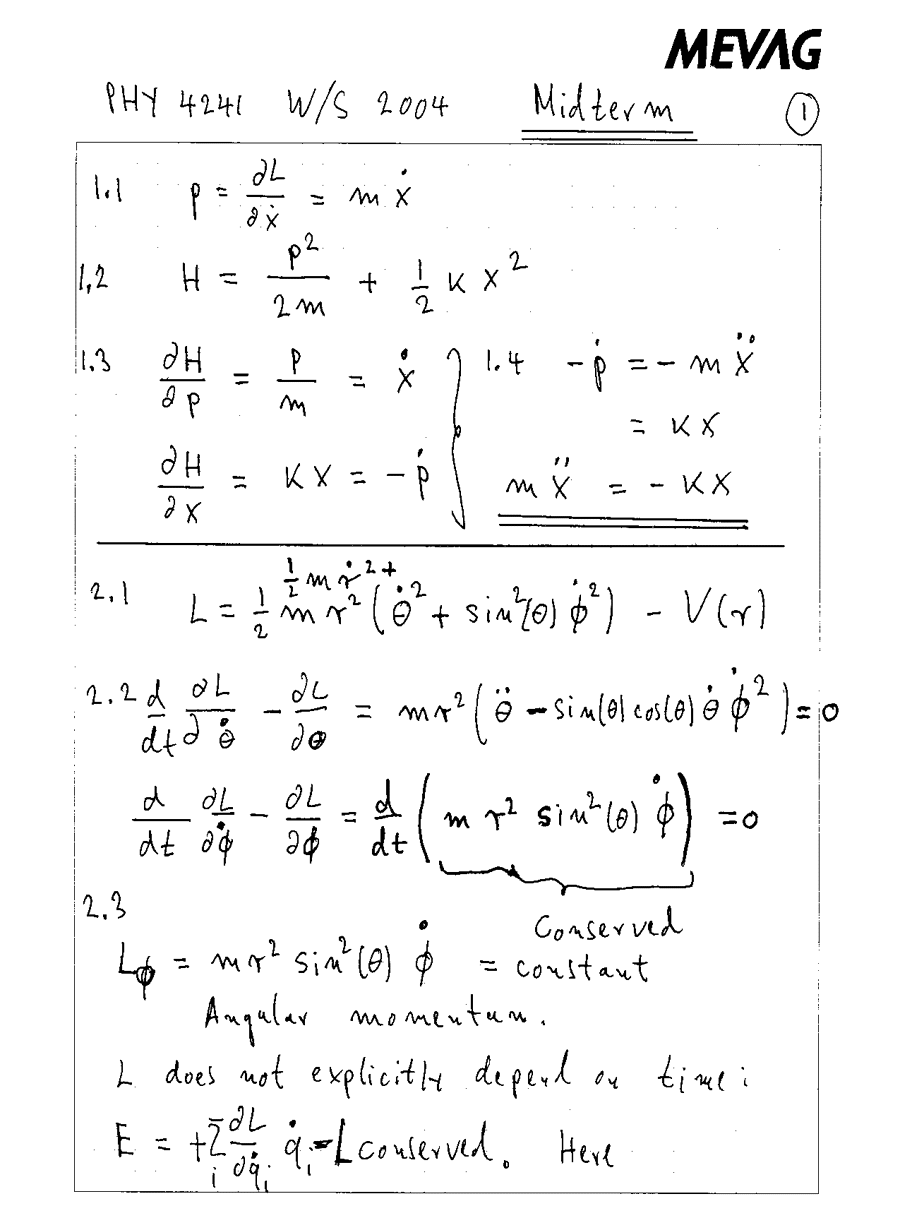 MEVAG
PHY 4241 W/S 2004 Midterm ①
1.1 p = ∂L/∂ẋ = m ẋ
1.2 H = p²/2m + 1/2 K x²
1.3 ∂H/∂p = p/m = ẋ } 1.4 - ṗ = - m ẍ
= K x
∂H/∂x = K x = - ṗ m ẍ = - K x
1/2 m ṙ² +
2.1 L = 1/2 m r² (θ̇² + sin²(θ) φ̇²) - V(r)
2.2 d/dt ∂L/∂θ̇ - ∂L/∂θ = m r² (θ̈ - sin(θ) cos(θ) θ̇ φ̇²) = 0
d/dt ∂L/∂φ̇ - ∂L/∂φ = d/dt (m r² sin²(θ) φ̇) = 0
2.3
Conserved
L_φ = m r² sin²(θ) φ̇ = constant
Angular momentum.
L does not explicitly depend on time:
E = + Σ_i ∂L/∂q̇_i q̇_i - L conserved. Here